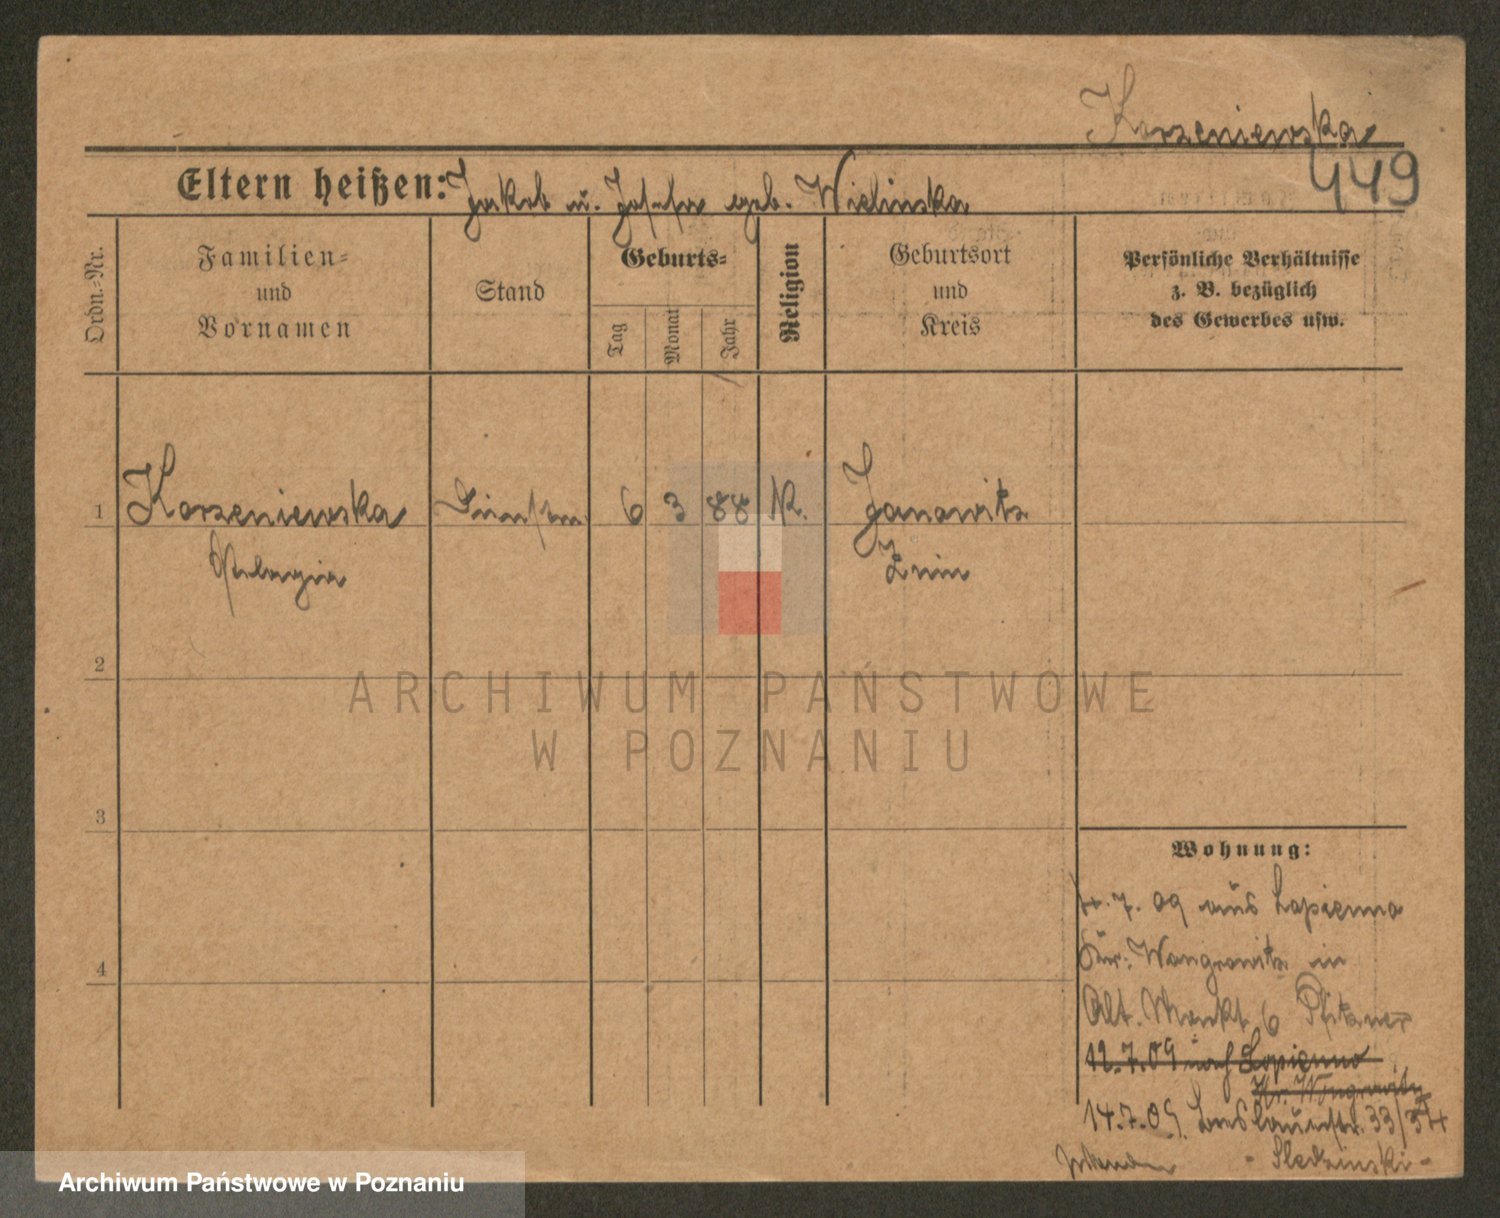 Korzeniewska
449
Eltern heißen: Jakob u. Josefa geb. Wielinska
Ordn.-Nr.
Familien-
und
Vornamen
Stand
Geburts-
Tag
Monat
Jahr
Religion
Geburtsort
und
Kreis
Persönliche Verhältnisse
z. B. bezüglich
des Gewerbes usw.
1 Korzeniewska 6 3 88 K. Janowitz
Pelagia Znin
2
ARCHIWUM PAŃSTWOWE
W POZNANIU
3
Wohnung:
4.7.09 aus Lopienno
Kr. Wongrowitz in
4
Alt. Markt 6
12.7.09 nach Lopienno
Kr. Wongrowitz
14.7.09. Breslauerstr. 33/34
- Sledzinski -
Archiwum Państwowe w Poznaniu